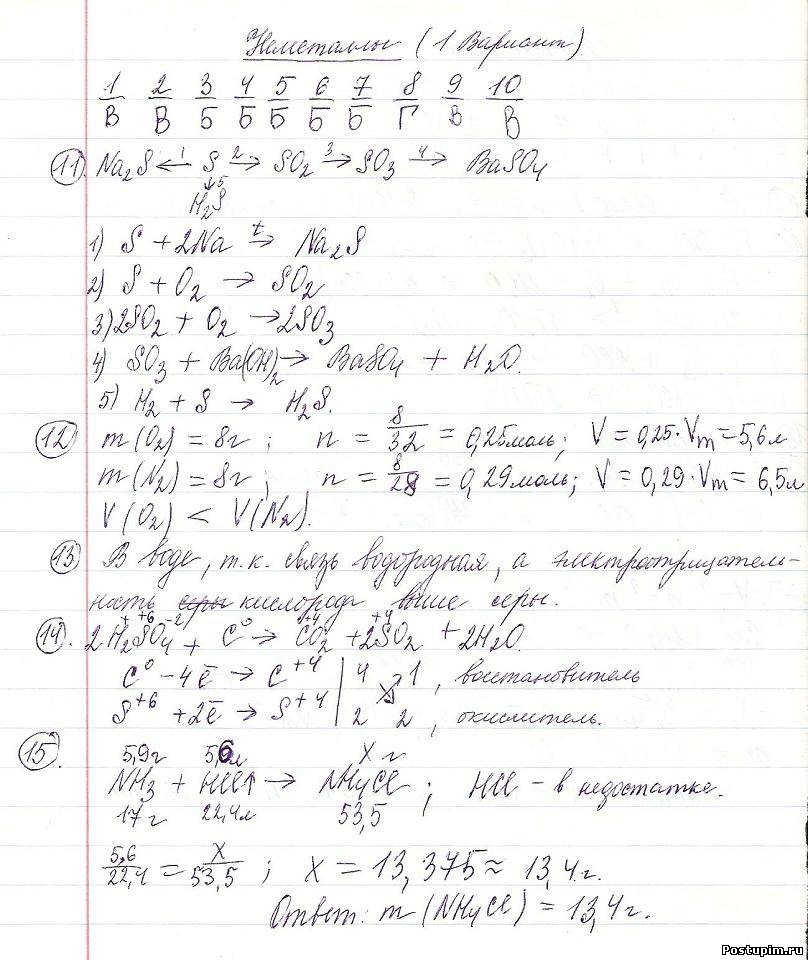 Неметаллы (1 Вариант)
1 2 3 4 5 6 7 8 9 10
В В Б Б Б Б Б Г В В
11. Na2S ←1 S 2→ SO2 3→ SO3 4→ BaSO4
↓5
H2S
1) S + 2Na t→ Na2S
2) S + O2 → SO2
3) 2SO2 + O2 → 2SO3
4) SO3 + Ba(OH)2 → BaSO4 + H2O.
5) H2 + S → H2S.
12 m(O2) = 8г; n = 8/32 = 0,25моль; V = 0,25·Vm = 5,6л
m(N2) = 8г; n = 8/28 = 0,29моль; V = 0,29·Vm = 6,5л
V(O2) < V(N2).
13 В воде, т.к. связь водородная, а электроотрицатель-
ность серы кислорода выше серы.
+ +6 -2 0 +4 +4
14. 2H2SO4 + C → CO2 + 2SO2 + 2H2O.
C0 - 4ē → C+4 | 4 1, восстановитель
S+6 + 2ē → S+4 | 2 2, окислитель.
15. 5,9г 5,6л X г
NH3 + HCl↑ → NH4Cl; HCl - в недостатке.
17г 22,4л 53,5
5,6/22,4 = X/53,5; X = 13,375 ≈ 13,4г.
Ответ: m(NH4Cl) = 13,4г.
Postupim.ru